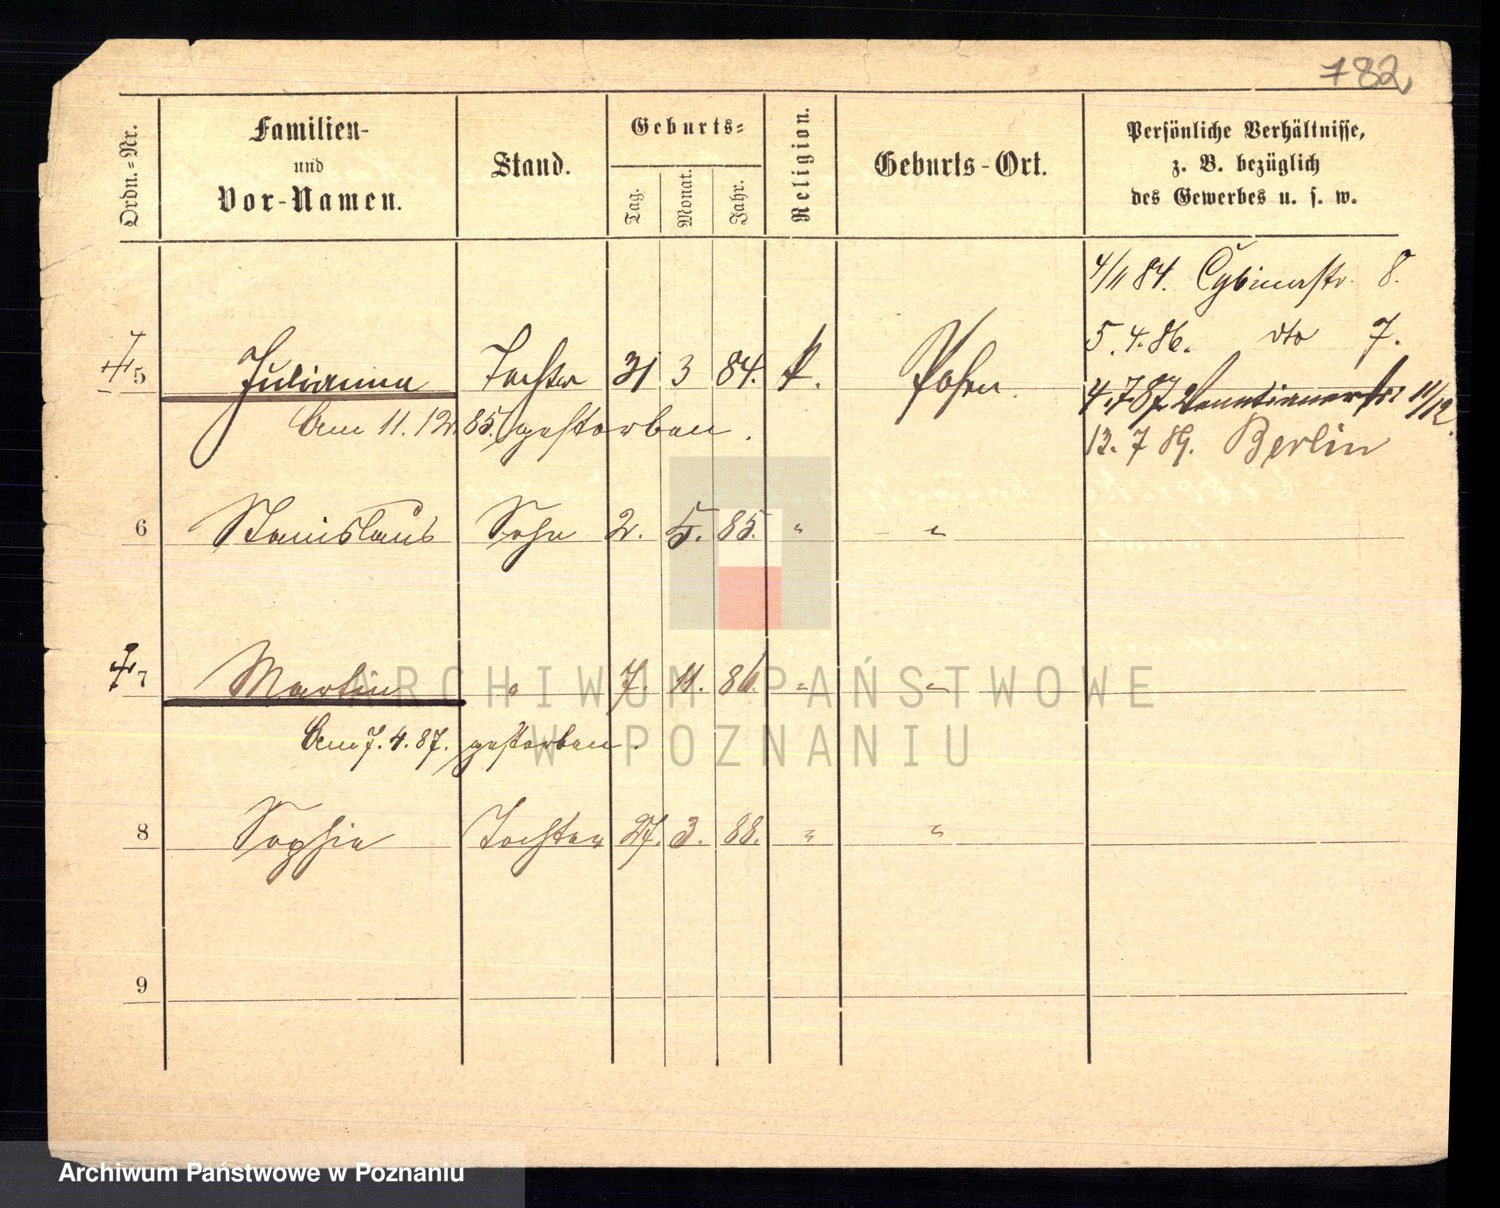 782
Ordn.-Nr.
Familien-
und
Vor-Namen.
Stand.
Geburts-
Tag.
Monat.
Jahr.
Religion.
Geburts-Ort.
Persönliche Verhältnisse,
z. B. bezüglich
des Gewerbes u. s. w.
4/11 84. Cybinastr. 8.
5.4.86. dto 7.
5 Julianna Tochter 31 3 84. k. Posen.
4.7 87. Venetianerstr. 11/12.
Am 11. 12. 85. gestorben.
13. 7 89. Berlin
6 Stanislaus Sohn 2. 5. 85. " "
7 Martin " 7. 11. 86. " "
Am 7. 4. 87. gestorben.
8 Sophie Tochter 27. 3. 88. " "
9
ARCHIWUM PAŃSTWOWE
W POZNANIU
Archiwum Państwowe w Poznaniu